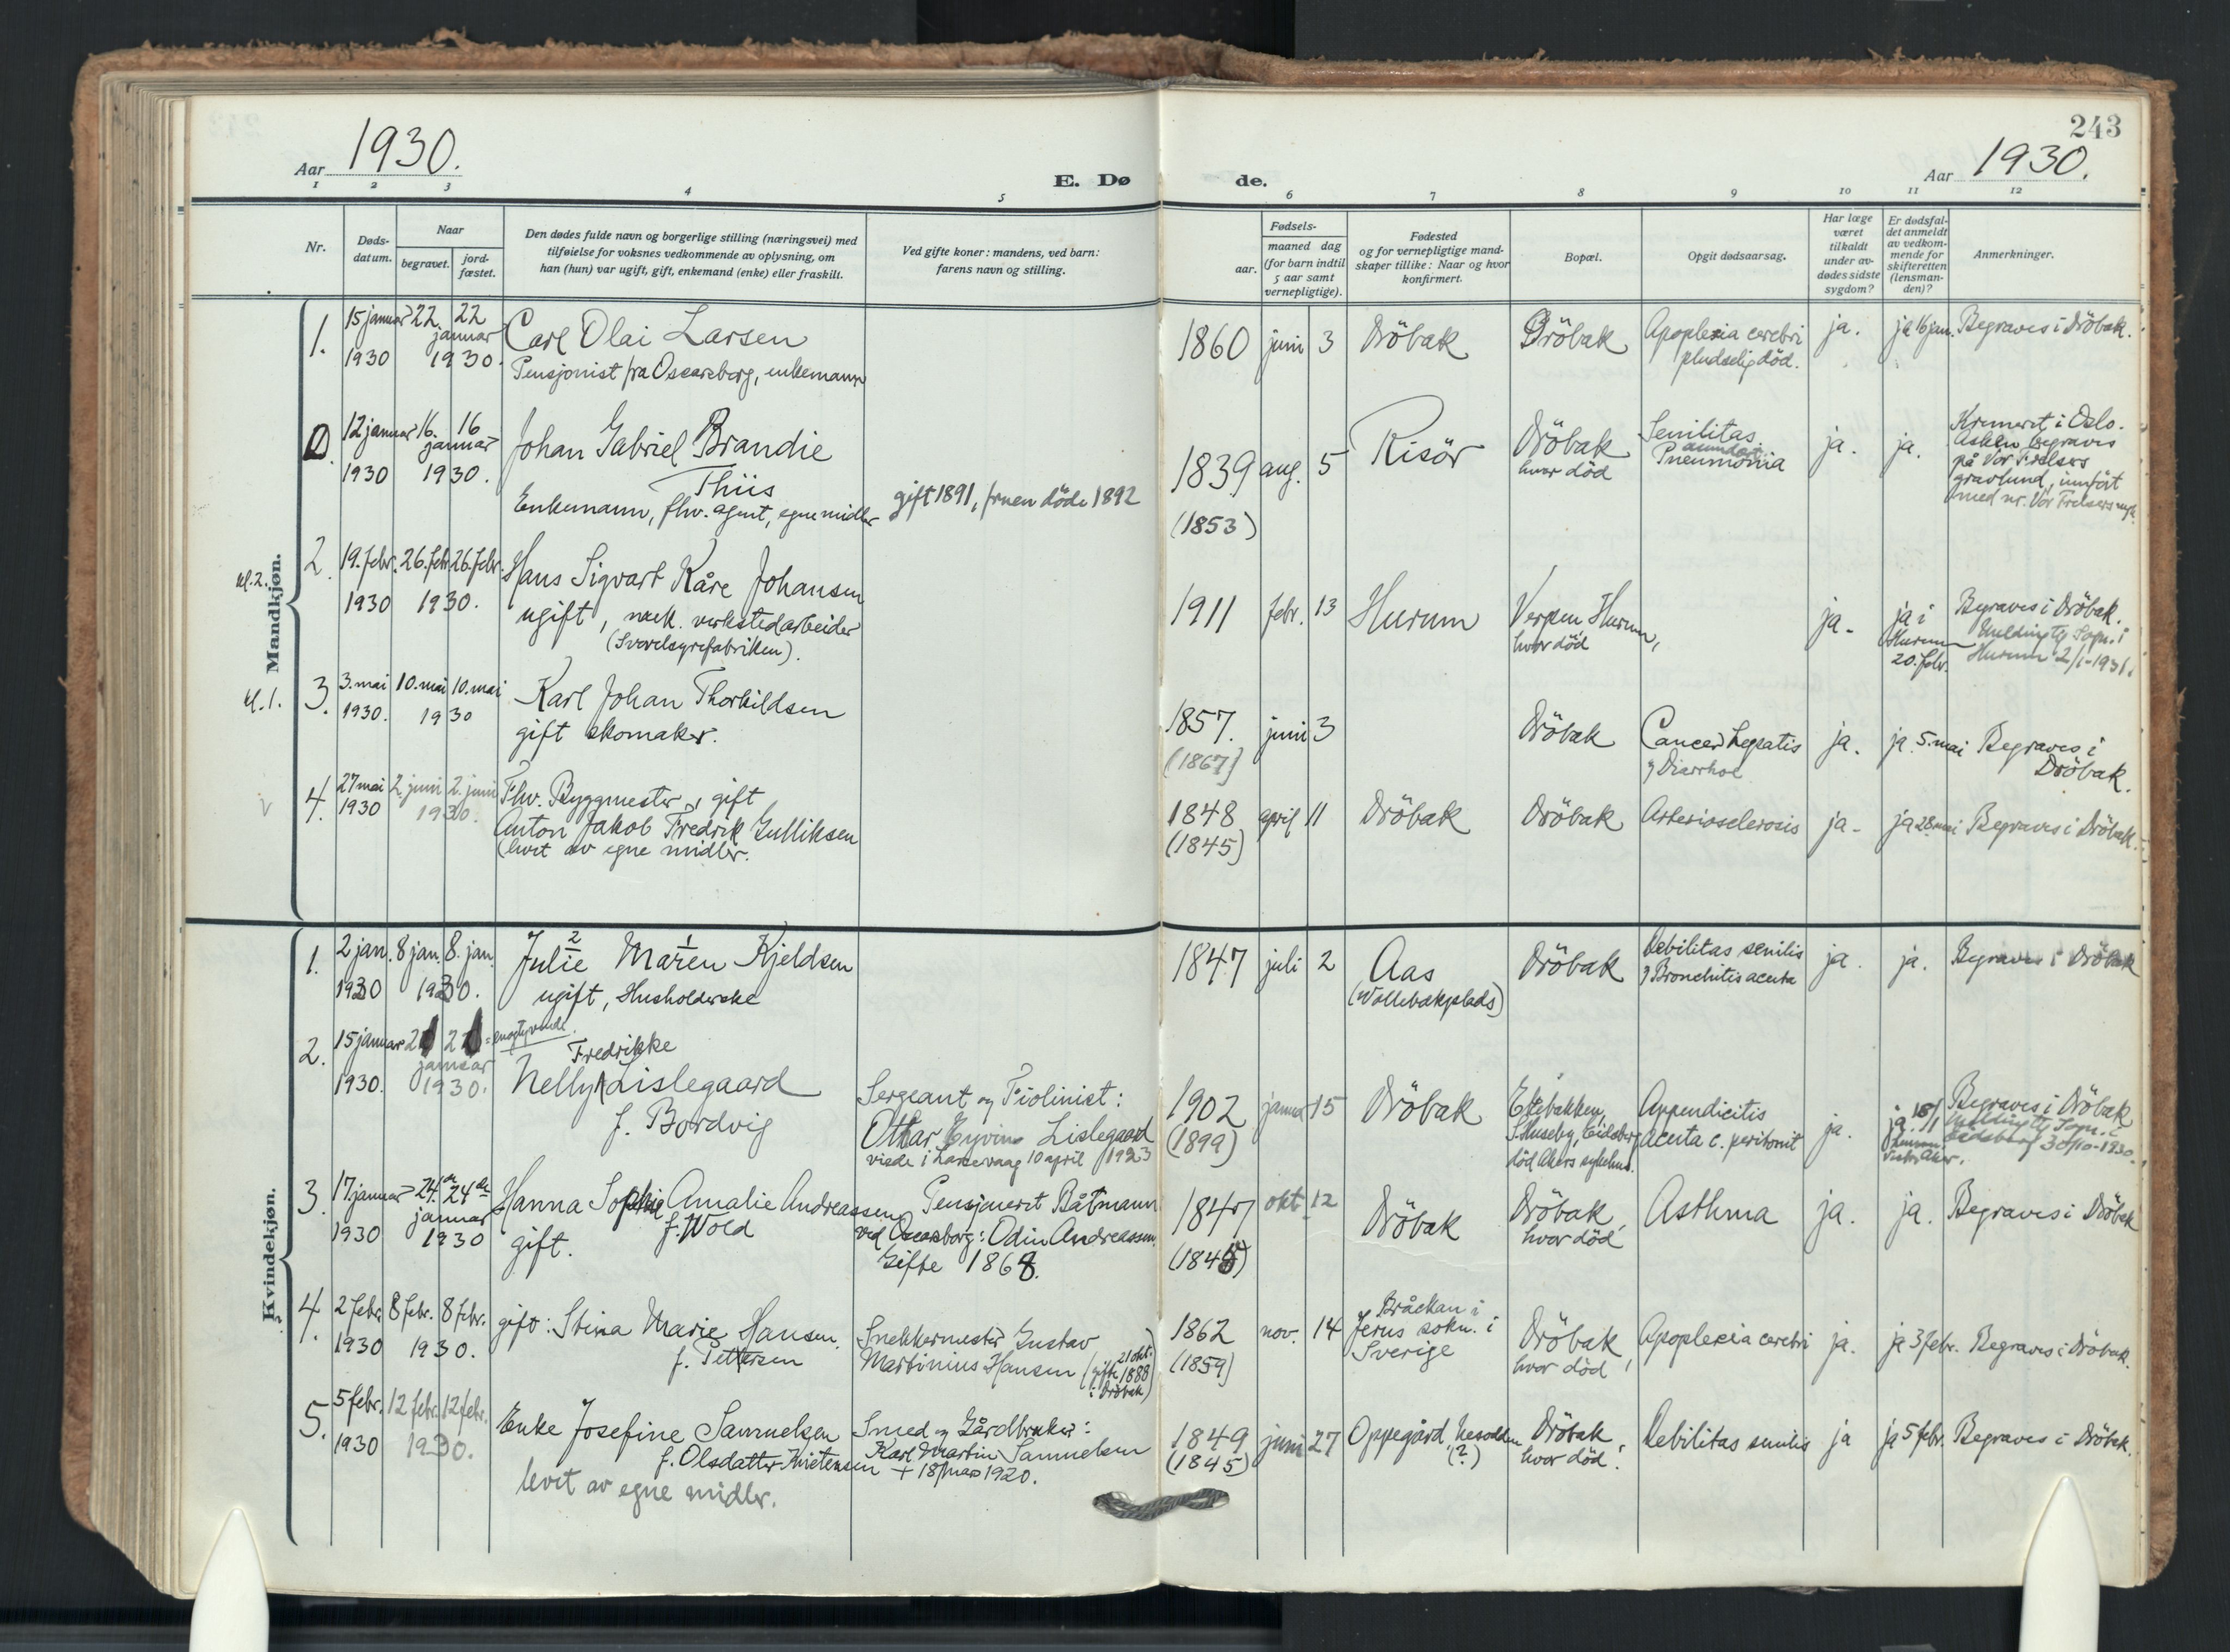 243
Aar 1930.
E. Dø de.
Aar 1930.
1 2 3 4 5 6 7 8 9 10 11 12
Nr.
Døds-
datum.
Naar
begravet.
jord-
fæstet.
Den dødes fulde navn og borgerlige stilling (næringsvei) med
tilføielse for voksnes vedkommende av oplysning, om
han (hun) var ugift, gift, enkemand (enke) eller fraskilt.
Ved gifte koner: mandens, ved barn:
farens navn og stilling.
Fødsels-
aar.
maaned dag
(for barn indtil
5 aar samt
vernepligtige).
Fødested
og for vernepligtige mand-
skaper tillike: Naar og hvor
konfirmert.
Bopæl.
Opgit dødsaarsag.
Har læge
været
tilkaldt
under av-
dødes sidste
sygdom?
Er dødsfal-
det anmeldt
av vedkom-
mende for
skifteretten
(lensman-
den)?
Anmerkninger.
Mandkjøn.
1.
15 januar
1930
22. 22
januar
1930.
Carl Olai Larsen
Pensjonist fra Oscarsborg, enkemann
1860 juni 3
Dröbak
Dröbak
Apoplexia cerebri
pludselig död.
ja.
ja 16 jan.
Begraves i Dröbak.
0.
12 januar
1930
16. 16
januar
1930.
Johan Gabriel Brandie
Thiis
Enkemann, fhv. agent, egne midler
gift 1891, fruen döde 1892
1839 aug. 5
(1853)
Risör
Dröbak
hvor död
Senilitas
Pneumonia
ja.
ja.
Kremert i Oslo.
Asken begraves
på Vor Frelsers
gravlund, innfört
med nr. Vor Frelsers
kl. 2.
2.
19. febr.
1930
26. febr. 26. febr.
1930.
Hans Sigvart Kåre Johansen
ugift, mek. verkstedarbeider
(Svovelsyrefabriken).
1911 febr. 13
Hurum
Verpen Hurum,
hvor död
ja.
ja i
Hurum
20. febr.
Begraves i Dröbak.
Melding til Sogn. i
Hurum 2/1-1931.
kl. 1.
3.
3. mai
1930.
10. mai 10. mai
1930
Karl Johan Thorkildsen
gift skomaker.
1857. juni 3
(1867)
Dröbak
Cancer hepatis
& Diarrhoe
ja.
ja 5. mai
Begraves i
Dröbak.
4.
27 mai
1930
2. juni 2. juni
1930.
Fhv. Byggmester, gift
Anton Jakob Fredrik Gulliksen
(levet av egne midler.
1848 april 11
(1845)
Dröbak
Dröbak
Arteriosclerosis
ja.
ja 28 mai
Begraves i Dröbak.
Kvindekjøn.
1.
2 jan.
1930
8 jan. 8. jan.
1930.
2 1
Julie Maren Kjeldsen
ugift, Husholderske
1847 juli 2
Aas
(Vollebækplads)
Dröbak
Debilitas senilis
& Bronchitis acuta
ja.
ja.
Begraves i Dröbak
2.
15 januar
1930.
21 21 = enogtyvende.
januar
1930.
Fredrikke
Nelly Lislegaard
f. Bordvig
Sergeant og Fiolinist:
Ottar Eyvin Lislegaard
viede i Langevaag 10 april 1923
1902 januar 15
(1899)
Dröbak
Eikebakken,
S. Huseby, Eidsberg
död Akers sykehus.
Appendicitis
acuta c. peritonit
ja.
ja. 18/1
Vestre Aker.
Begraves i Dröbak
Melding til Sogn. i
Eidsberg 30/10-1930.
3.
17 januar
1930
24de 24de
januar
1930
Hanna Sophie Amalie Andreassen
f. Wold
gift.
Pensjonert Båtmann
ved Oscarsborg: Odin Andreassen.
Gifte 1868.
1847 okt. 12
(1845)
Dröbak
Dröbak,
hvor död
Asthma
ja.
ja.
Begraves i Dröbak
4.
2 febr.
1930
8 febr. 8 febr.
1930.
gift: Stina Marie Hansen.
f. Pettersen
Snekkermester Gustav
Martinius Hansen (gifte 21 okt. 1888
i Dröbak)
1862 nov. 14
(1859)
Bråckan i
Jerns sokn. i
Sverige
Dröbak,
hvor död
Apoplexia cerebri
ja.
ja 3 febr.
Begraves i Dröbak.
5.
5 febr.
1930
12 febr. 12 febr.
1930.
Enke Josefine Samuelsen
f. Olsdatter Kristensen
levet av egne midler.
Smed og Gårdbruker:
Karl Martin Samuelsen
+ 18 mars 1920.
1849 juni 27
(1845)
Oppegård, Nesodden
(?)
Dröbak,
hvor död.
Debilitas senilis
ja
ja 5 febr.
Begraves i Dröbak.